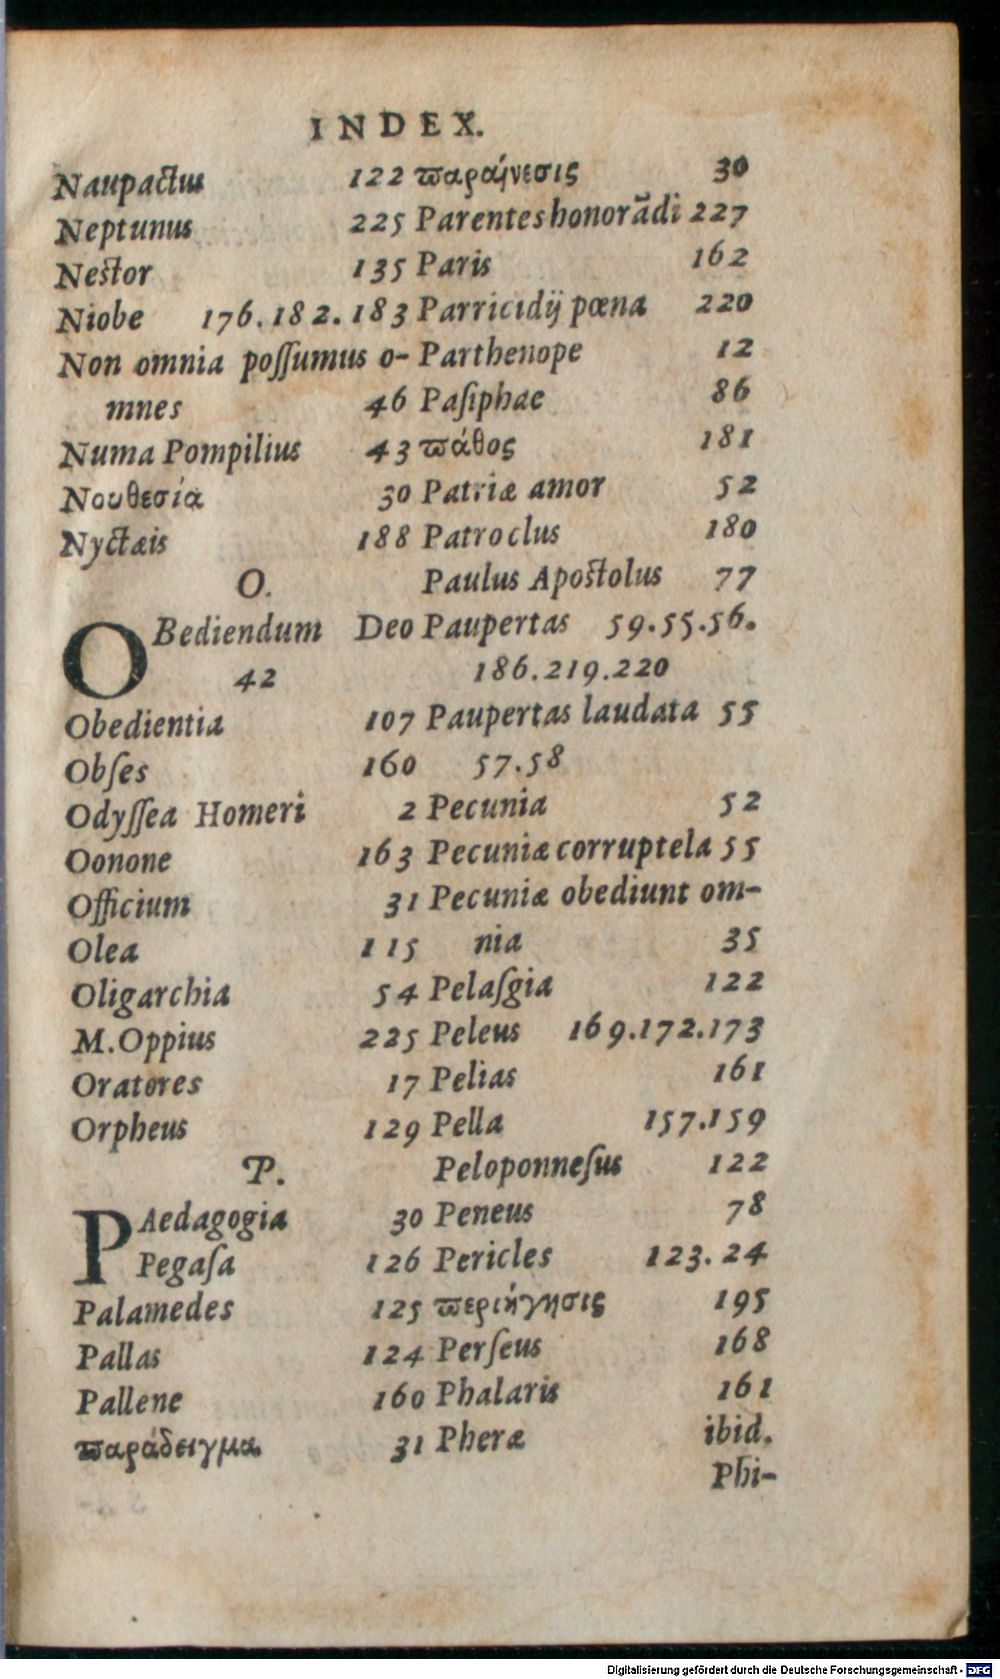 INDEX.
Naupactus 122
Neptunus 225
Nestor 135
Niobe 176.182.183
Non omnia poſſumus o-
mnes 46
Numa Pompilius 43
Νουθεσία 30
Nyctæis 188
O.
OBediendum Deo
42
Obedientia 107
Obſes 160
Odyſſea Homeri 2
Oonone 163
Officium 31
Olea 115
Oligarchia 54
M. Oppius 225
Oratores 17
Orpheus 129
P.
PAedagogia 30
Pegaſa 126
Palamedes 125
Pallas 124
Pallene 160
ϖαράδειγμα 31
ϖαραίνεσις 30
Parentes honorãdi 227
Paris 162
Parricidij pœna 220
Parthenope 12
Paſiphae 86
ϖάθος 181
Patriæ amor 52
Patroclus 180
Paulus Apostolus 77
Paupertas 59.55.56.
186.219.220
Paupertas laudata 55
57.58
Pecunia 52
Pecuniæ corruptela 55
Pecuniæ obediunt om-
nia 35
Pelaſgia 122
Peleus 169.172.173
Pelias 161
Pella 157.159
Peloponneſus 122
Peneus 78
Pericles 123.24
ϖεριήγησις 195
Perſeus 168
Phalaris 161
Pheræ ibid.
Phi-
Digitalisierung gefördert durch die Deutsche Forschungsgemeinschaft - DFG